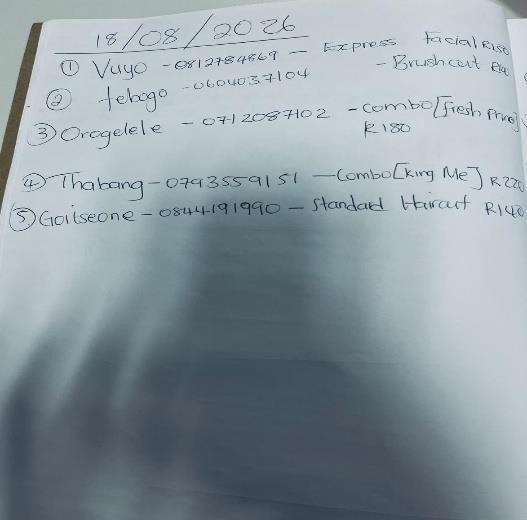 18/08/2026
① Vuyo - 0812784869 - Express Facial R150
② Tebogo - 0604037104 - Brushcut
③ Orogelele - 0712087102 - Combo [Fresh Prince]
R180
④ Thabang - 0793559151 - Combo [King Me] R220
⑤ Goitseone - 0844191990 - Standard Haircut R140